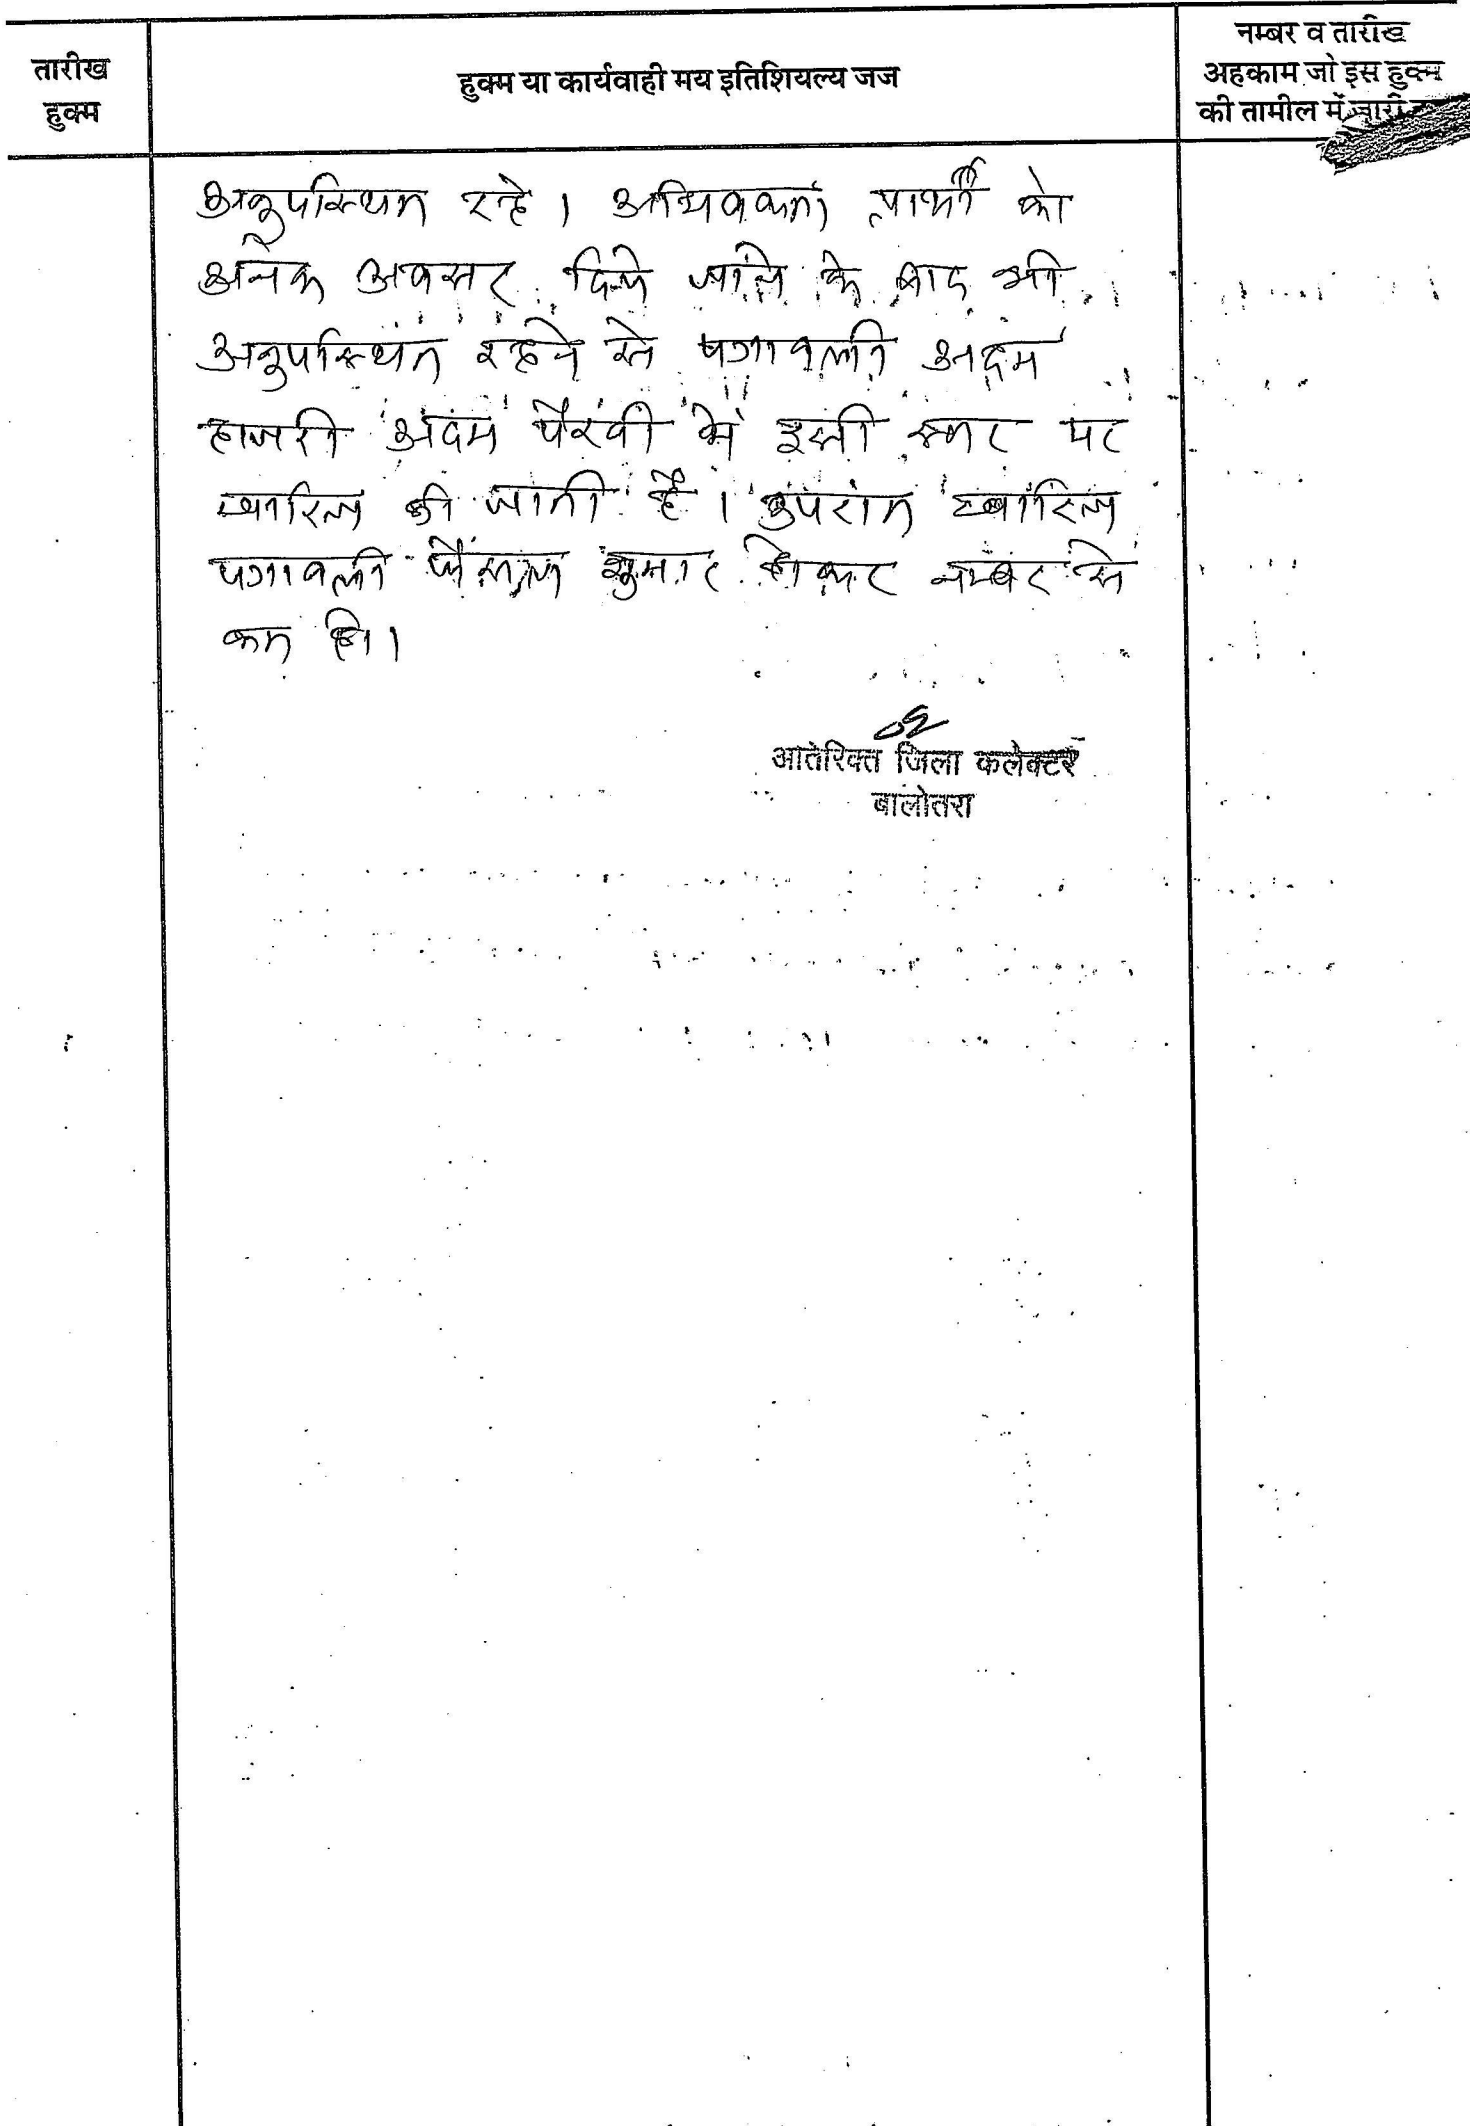 तारीख
हुक्म
हुक्म या कार्यवाही मय इतिशियल्य जज
नम्बर व तारीख
अहकाम जो इस हुक्म
की तामील में जारी
अनुपस्थित रहे। अभिवक्ता प्रार्थी को
अनेक अवसर दिये जाने के बाद भी
अनुपस्थित रहने से पत्रावली अदम
हाजरी अदम पैरवी में इसी स्तर पर
खारिज की जाती है। उपरांत खारिज
पत्रावली फैसल शुमार होकर नम्बर से
कम हो।
अतिरिक्त जिला कलेक्टर
बालोतरा